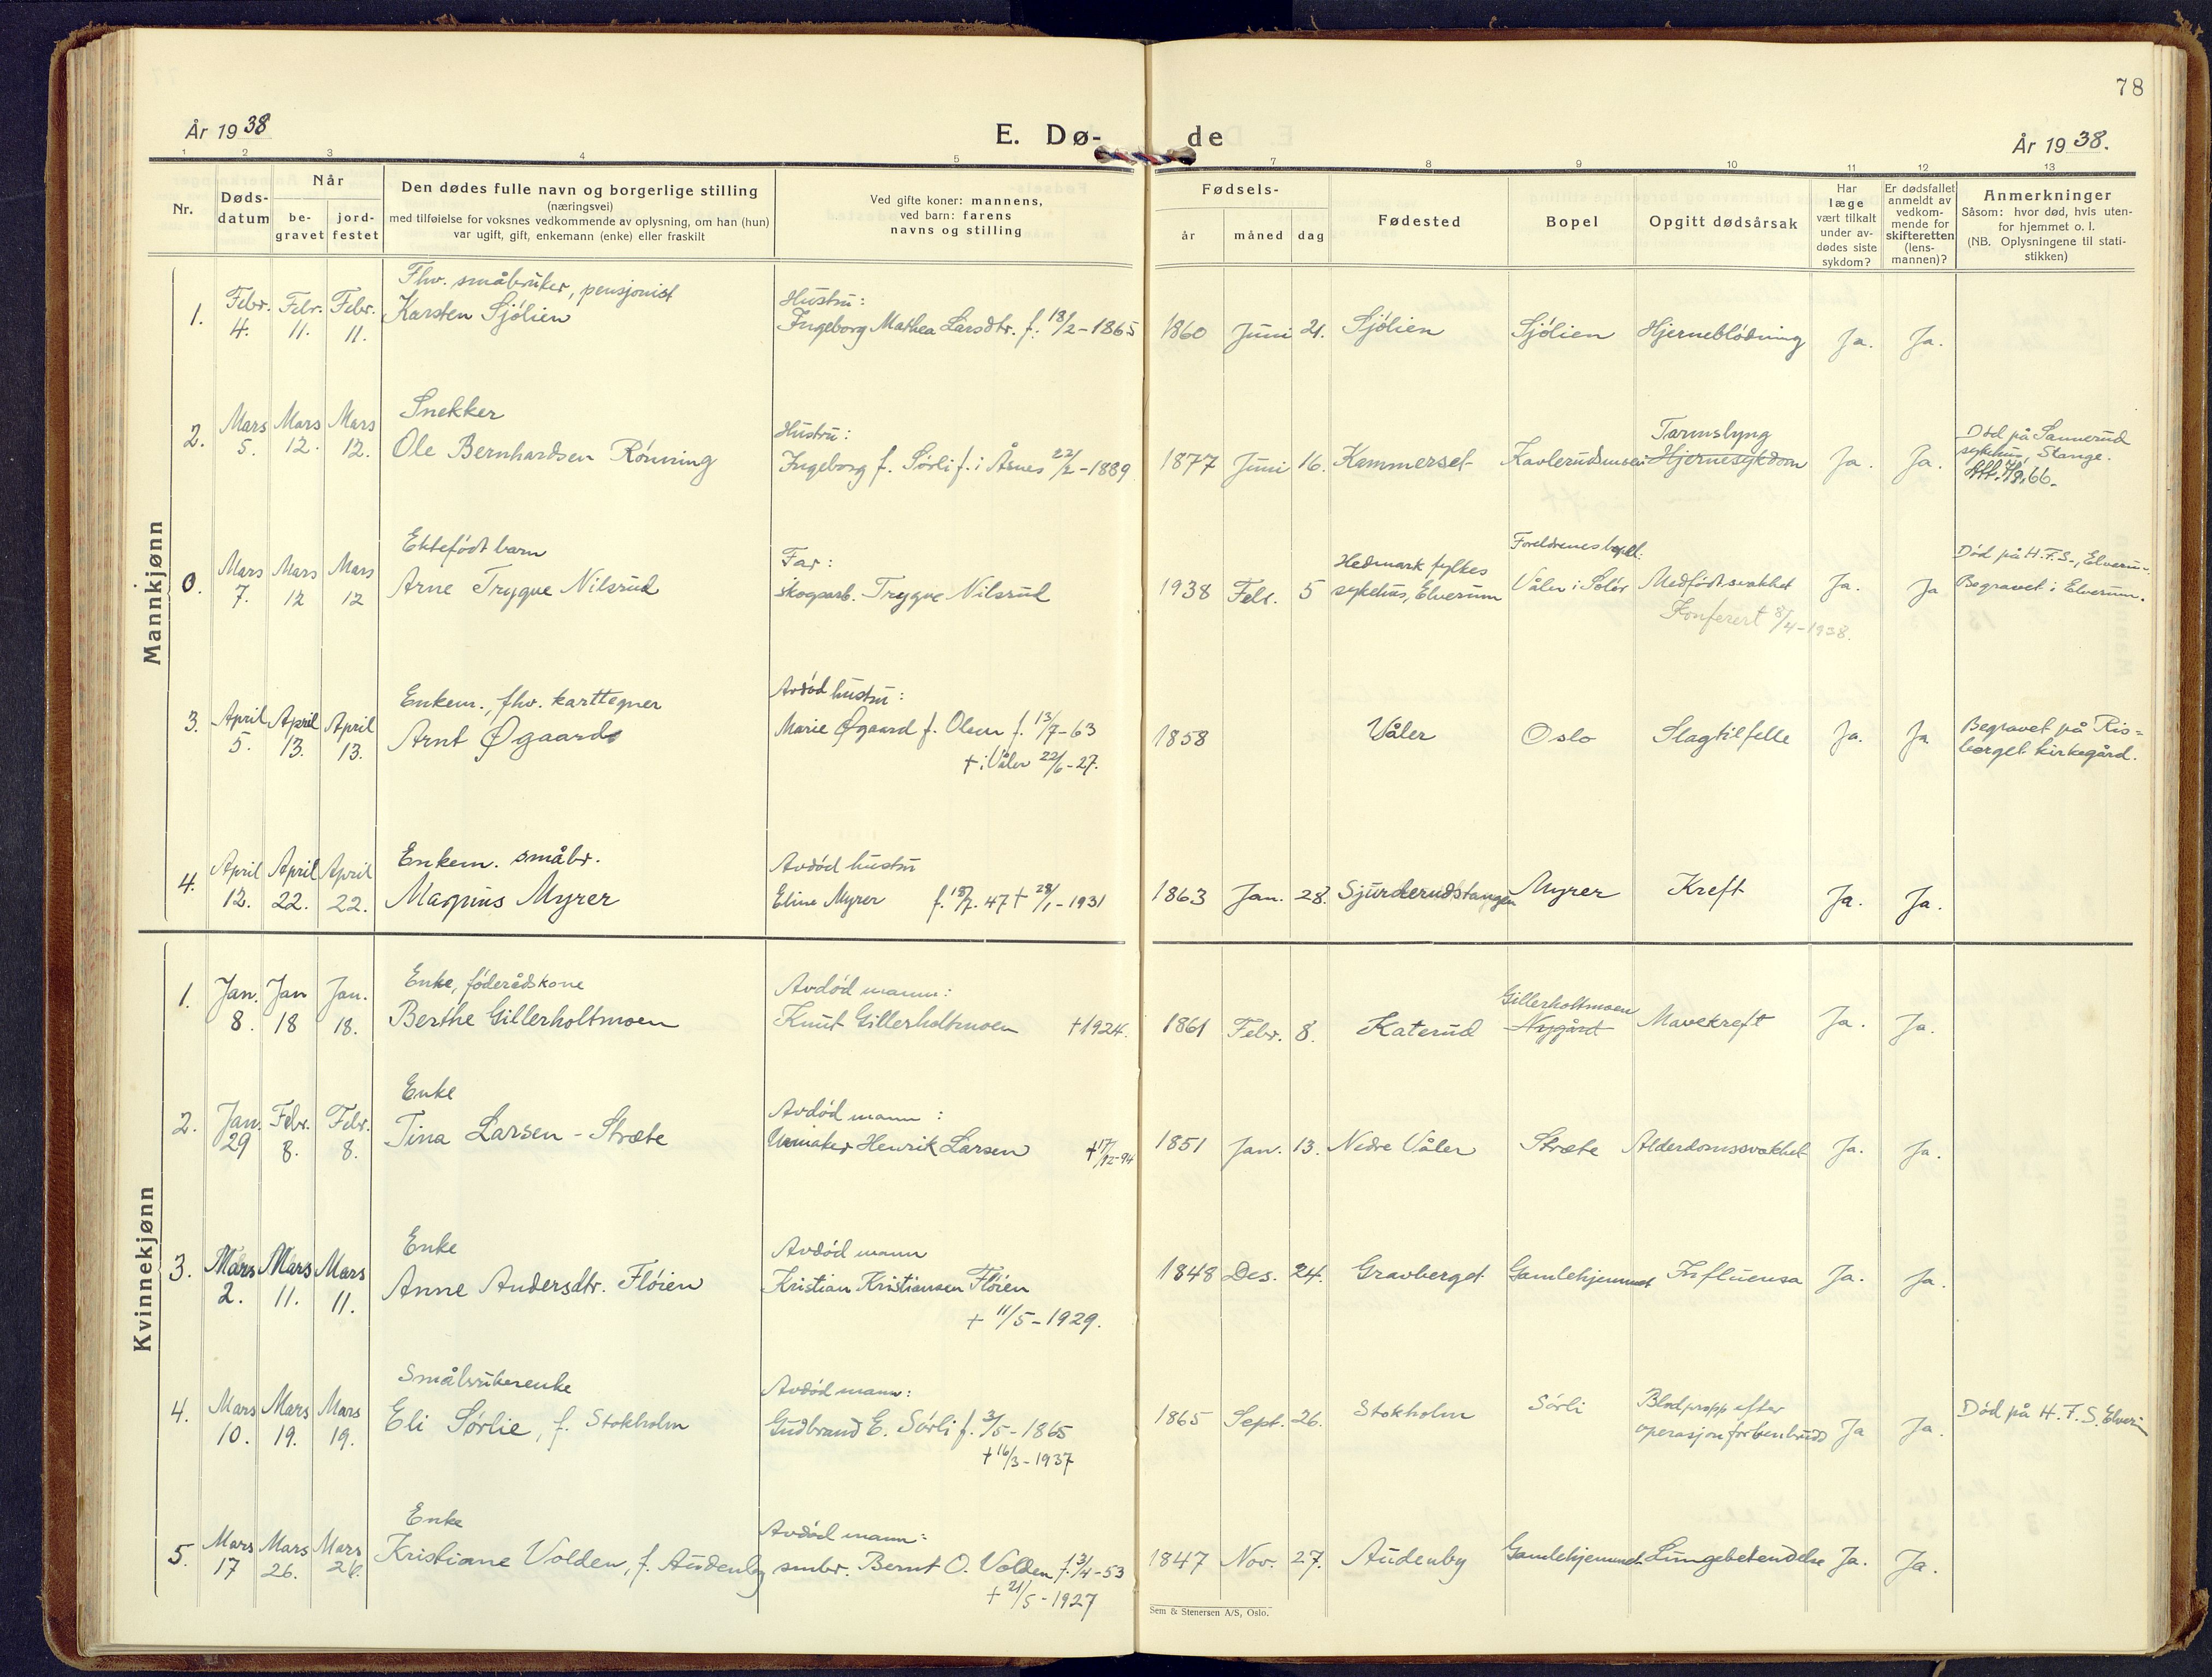 78
År 1938
E. Dø-
de
År 1938.
1 2 3 4 5 7 8 9 10 11 12 13
Nr.
Døds-
datum
Når
be-
gravet
jord-
festet
Den dødes fulle navn og borgerlige stilling
(næringsvei)
med tilføielse for voksnes vedkommende av oplysning, om han (hun)
var ugift, gift, enkemann (enke) eller fraskilt
Ved gifte koner: mannens,
ved barn: farens
navns og stilling
Fødsels-
år måned dag
Fødested
Bopel
Opgitt dødsårsak
Har
læge
vært tilkalt
under av-
dødes siste
sykdom?
Er dødsfallet
anmeldt av
vedkom-
mende for
skifteretten
(lens-
mannen)?
Anmerkninger
Såsom: hvor død, hvis uten-
for hjemmet o. l.
(NB. Oplysningene til stati-
stikken)
Mannkjønn
1.
Febr. Febr. Febr.
4. 11. 11.
Fhv. småbruker, pensjonist
Karsten Sjølien
Hustru:
Ingeborg Mathea Larsdtr. f. 18/2-1865
1860 Juni 21. Sjølien Sjølien Hjerneblødning Ja. Ja.
2.
Mars Mars Mars
5. 12. 12.
Snekker
Ole Bernhardsen Rønning
Hustru:
Ingeborg f. Sørli f. i Åsnes 22/2-1889
1877 Juni 16. Kammerset
Tarmslyng
Hjernesykdom Ja. Ja.
Død på Sannerud
sykehus, Stange.
0.
Mars Mars Mars
7. 12 12
Ektefødt barn
Arne Trygve Nilsrud
Far:
skogsarb. Trygve Nilsrud
1938 Feb. 5
Hedmark fylkes
sykehus, Elverum
Foreldrenes bopel:
Våler i Solør
Medfødt svakhet
Konferert 8/4-1938.
Ja. Ja
Død på H.F.S., Elverum.
Begravet i Elverum.
3.
April April April
5. 13. 13.
Enkem., fhv. karttegner
Arnt Øgaard
Avdød hustru:
Marie Øgaard f. Olsen f. 13/7-63
† i Våler 22/6-27.
1858 Våler Oslo Slagtilfelle Ja. Ja
Begravet på Ris=
berget kirkegård.
4.
April April April
12. 22. 22.
Enkem. småbr.
Magnus Myrer
Avdød hustru
Eline Myrer f. 18/7. 47 † 28/1-1931
1863 Jan. 28. Sjurderudstangen Myrer Kreft Ja. Ja.
Kvinnekjønn
1.
Jan. Jan Jan.
8. 18 18.
Enke, føderådskone
Berthe Gillerholtmoen
Avdød mann:
Knut Gillerholtmoen †1924.
1861 Febr. 8. Katerud
Gillerholtmoen
Nygård
Mavekreft Ja. Ja.
2.
Jan. Febr. Febr.
29 8. 8.
Enke
Tina Larsen - Stræte
Avdød mann:
Urmaker Henrik Larsen †17/12-94
1851 Jan. 13. Nedre Våler Stræte Alderdomssvakhet Ja. Ja.
3.
Mars Mars Mars
2. 11. 11.
Enke
Anne Andersdtr. Fløien
Avdød mann
Kristian Kristiansen Fløien
† 11/5-1929.
1848 Des. 24. Gravberget Gamlehjemmet Influensa Ja. Ja.
4.
Mars Mars Mars
10. 19. 19.
Småbrukerenke
Eli Sørlie, f. Stokholm
Avdød mann:
Gudbrand E. Sørli f. 3/5-1865
†16/3-1937
1865 Sept. 26. Stokholm Sørli
Blodpropp efter
operasjon for benbrudd
Ja Ja.
Død på H.F.S. Elverum
5.
Mars Mars Mars
17 26. 26.
Enke
Kristiane Volden, f. Audenby
Avdød mann:
smbr. Bernt O. Volden f. 3/4-53
† 21/5-1927
1847 Nov. 27. Audenby Gamlehjemmet Lungebetendelse Ja. Ja.
Sem & Stenersen A/S, Oslo.